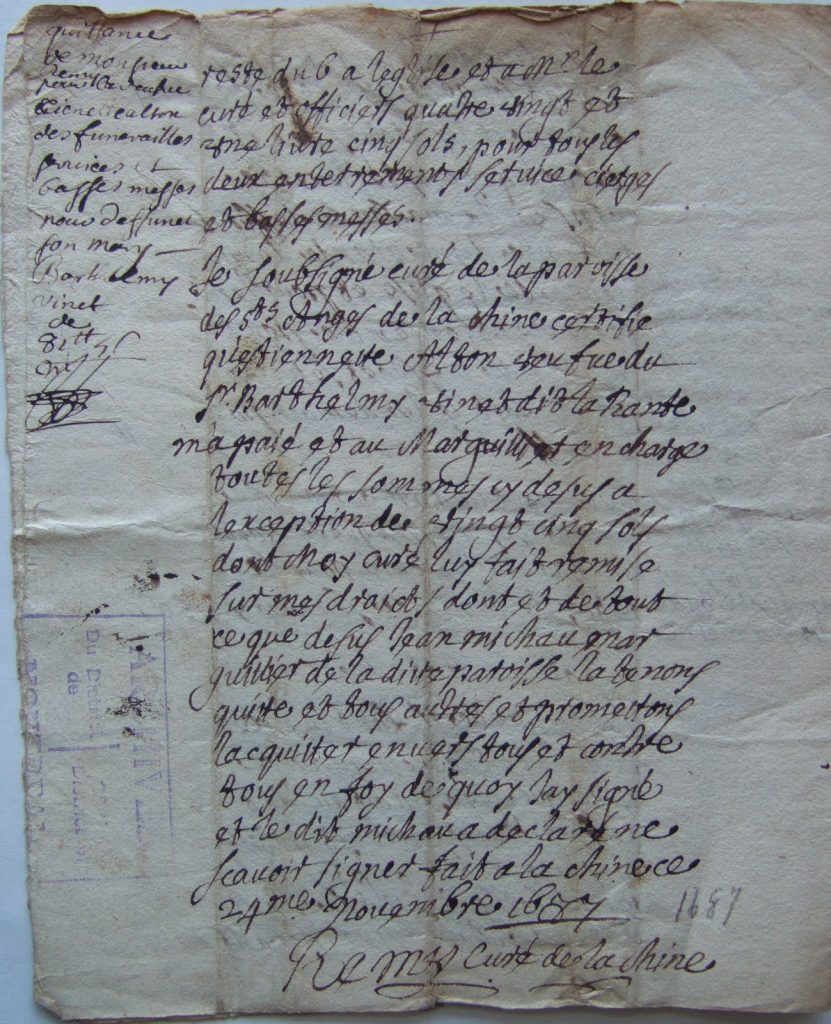 quittance
de monsieur
Remy
pour la veufve
etiennette alton
des funerailles
services et
basses messes
pour deffunct
son mary
Barthelemy
vinet
de
81tt 5s
reste dub a leglise et a Mr. le
curé et officiers quatre vingt et
vne livre cinq sols, pour tous les
deux enterrements service cierges
et basses messes.
Je soubsigné curé de la paroisse
des sts Anges de la chine certifie
qu'etiennette Alton veufue du
sr. Barthelmy vinet dit la Rante
m'a paié et au Marguillier en charge
toutes les sommes cy desus a
lexception de vingt cinq sols
dont Moy curé luy fait remise
sur mes droicts dont et de tout
ce que desus Jean michau mar
guillier de la dite paroisse la tenons
quitte et tous autres et promettons
lacquitter envers tous et contre
tous en foy de quoy Jay signé
et le dit michau a declaré ne
scavoir signer fait a la chine ce
24me. Novembre 1687
1687
Remy Curé de la chine
ARCHIV
Du District
de
MONTREAL